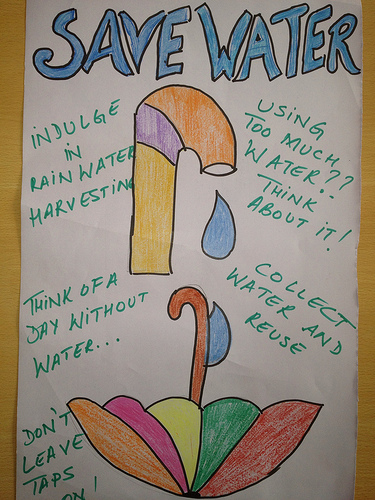 SAVE WATER
INDULGE
IN
RAIN WATER
HARVESTING
USING
TOO MUCH
WATER!??
THINK
ABOUT IT!
THINK OF A
DAY WITHOUT
WATER...
COLLECT
WATER AND
REUSE
DON'T
LEAVE
TAPS
ON!